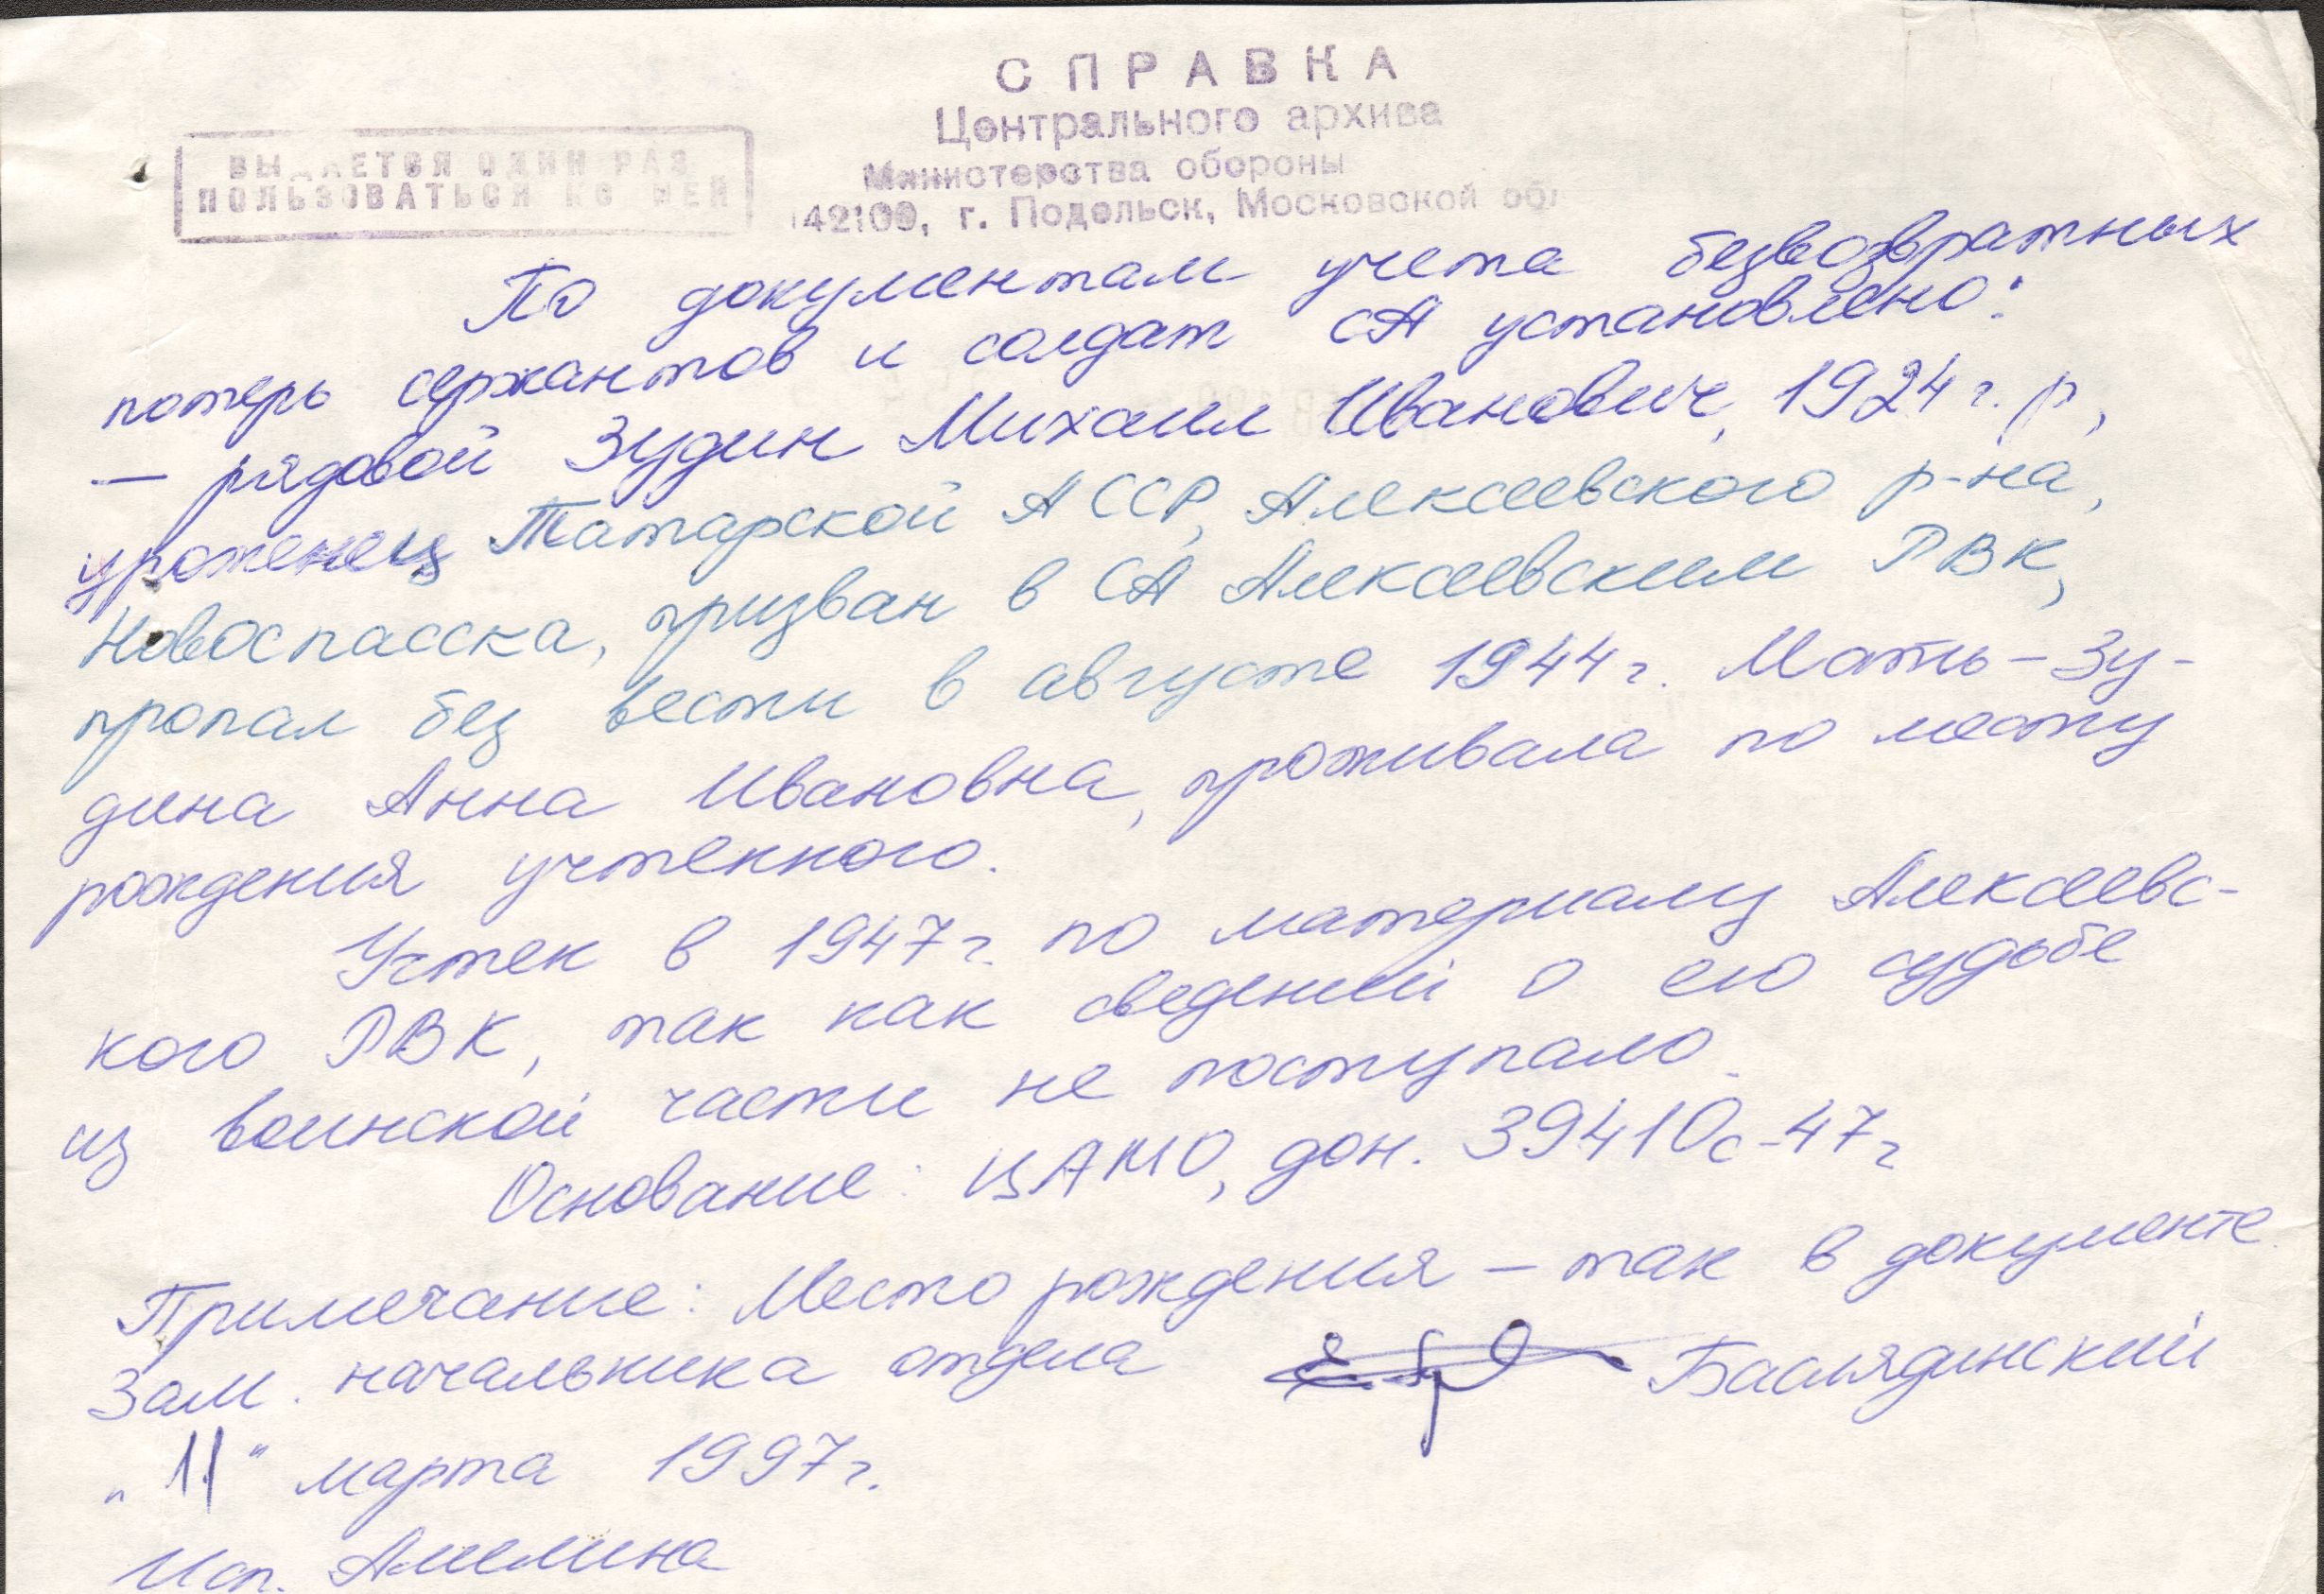 СПРАВКА
Центрального архива
Министерства обороны
142100, г. Подольск, Московской обл
ВЫДАЕТСЯ ОДИН РАЗ
ПОЛЬЗОВАТЬСЯ КО ЕЙ
По документам учета безвозвратных
потерь сержантов и солдат СА установлено:
— рядовой Зудин Михаил Иванович, 1924 г. р,
уроженец Татарской АССР, Алексеевского р-на,
Новоспасска, призван в СА Алексеевским РВК,
пропал без вести в августе 1944 г. Мать – Зу-
дина Анна Ивановна, проживала по месту
рождения учтенного.
Учтен в 1947 г. по материалу Алексеевс-
кого РВК, так как сведений о его судьбе
из воинской части не поступало.
Основание: ЦАМО, дон. 39410с-47г
Примечание: Место рождения – так в документе.
Зам. начальника отдела
"11" марта 1997 г.
Исп.